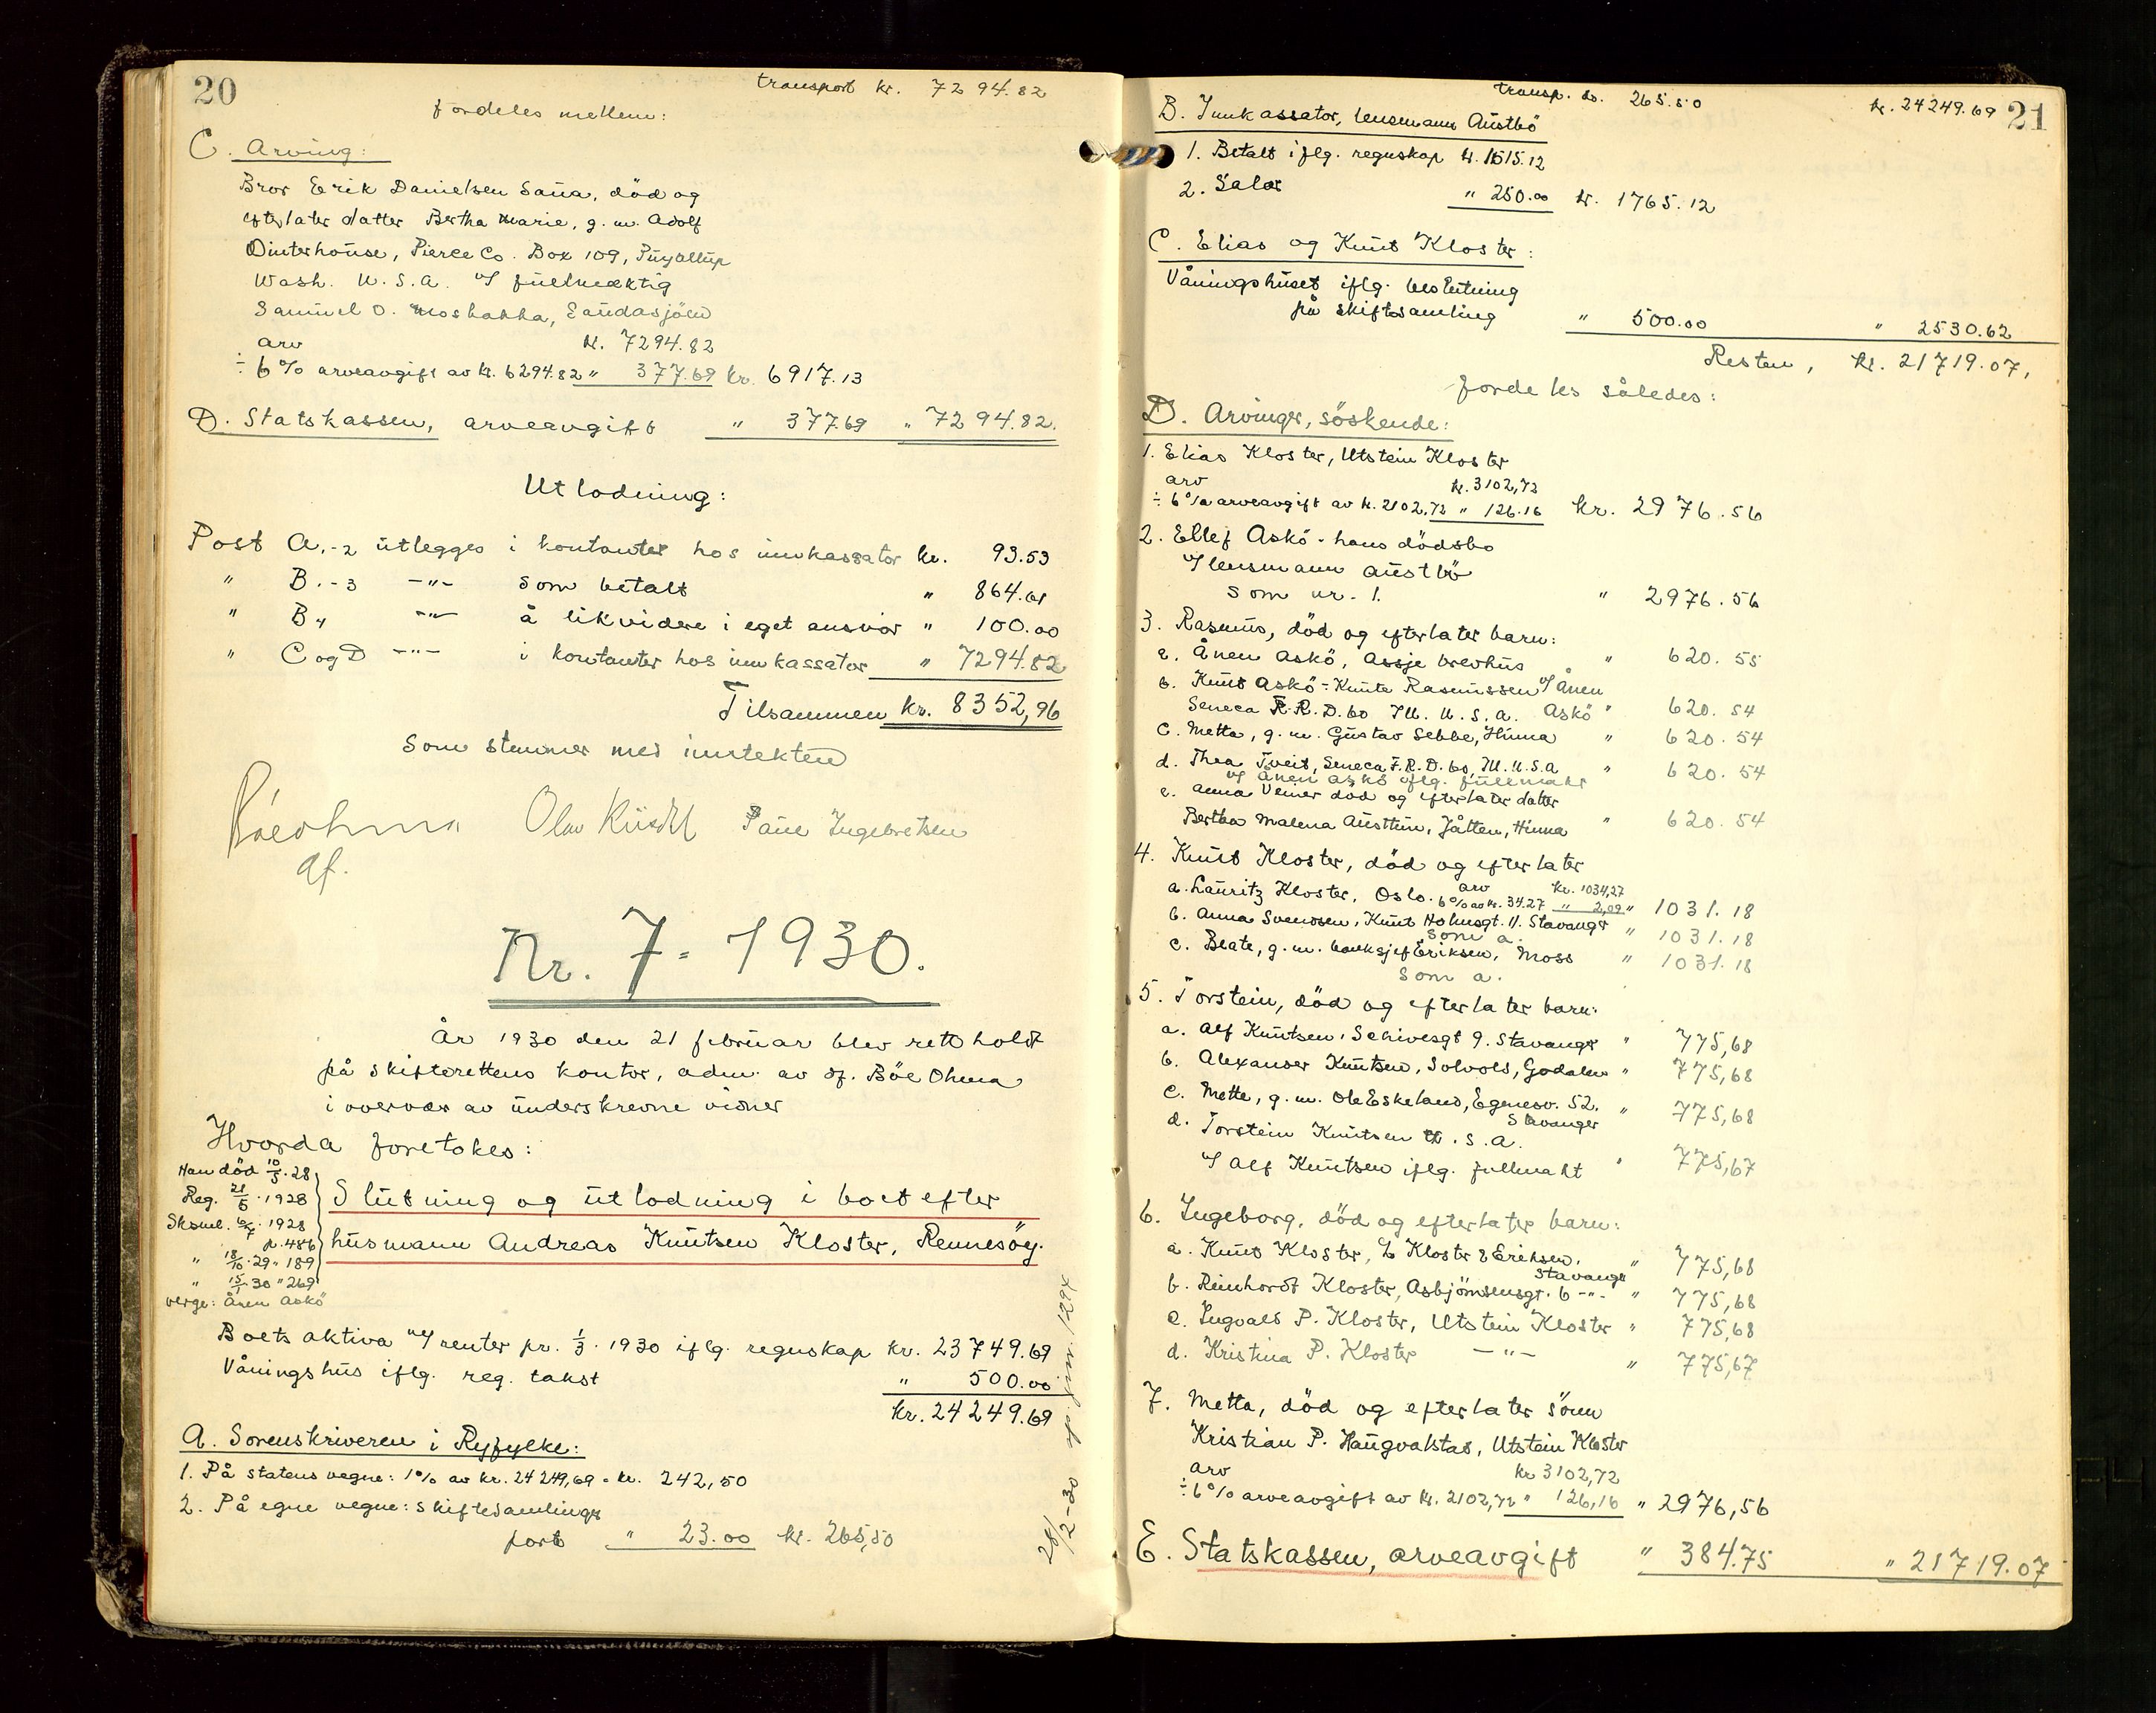 20
transport kr. 7294.82
fordeles mellem:
C. Arving:
Bror Erik Danielsen Sana, död og
efterlater datter Bertha Marie, g. m. Adolf
Dinterhouse, Pierce Co. Box 109, Puyallup
Wash. U. S. A. v/ fuldmektig
Samuel O. Moshakka, Sandasjöen
arv kr. 7294.82
÷ 6% arveavgift av kr. 6294.82 " 377.69 kr. 6917.13
D. Statskassen, arveavgift " 377.69 " 7294.82.
Utlodning:
Post A.-2 utlegges i kontanter hos innkassator kr. 93.53
" B.-3 -"- som betalt " 864.61
" B4 -"- å likvidere i eget ansvar " 100.00
" C og D -"- i kontanter hos innkassator " 7294.82
Tilsammen kr. 8352,96
som stemmer med inntekten
Böe Ohma Olav Paul Ingebretsen
af.
Nr. 7 - 1930.
År 1930 den 21 februar blev rett holdt
på skifterettens kontor, adm. av df. Böe Ohma
i overvær av underskrevne vidner
Hvorda foretokes:
Han död 10/5. 28
Reg. 21/6. 1928
Sksml. 6/7. 1928
p. 486
" 18/10. 29 " 189
" 15/1. 30 " 269
verge: Ånen Askö
Slutning og utlodning i boet efter
husmann Andreas Knutsen Kloster, Rennesöy.
Boets aktiva m/ renter pr. 1/3. 1930 iflg. regnskap kr. 23749.69
Våningshus iflg. reg. takst " 500.00
kr. 24249.69
A. Sorenskriveren i Ryfylke:
1. På statens vegne: 1% av kr. 24249,69 = kr. 242,50
2. På egne vegne: skiftesamlings
port " 23.00 kr. 265,50
28/2-30
21
transp. do. 265.50 kr. 24249.69
B. Innkassator, lensmann Austbö
1. Betalt iflg. regnskap kr. 1515.12
2. Salær " 250.00 kr. 1765.12
C. Elias og Knut Kloster:
Våningshuset iflg. beslutning
på skiftesamling " 500.00 " 2530.62
Resten, kr. 21719.07,
fordeles således:
D. Arvinger, söskende:
1. Elias Kloster, Utstein Kloster
arv kr. 3102,72
÷ 6% arveavgift av kr. 2102,72 " 126.16 kr. 2976.56
2. Ellef Askö - hans dödsbo
v/ lensmann Austbö
som nr. 1. " 2976.56
3. Rasmus, död og efterlater barn:
a. Ånen Askö, Assje brevhus " 620.55
b. Knut Askö - Knute Rasmussen v/ Ånen
Seneca R.R.D. 60 Ill. U.S.A. Askö " 620.54
c. Metta, g. m. Gustav Sebbe, Hinna " 620.54
d. Thea Tveit, Seneca F.R.D. 60, Ill. U.S.A " 620.54
v/ Ånen Askö iflg. fullmakt
e. Anna Vemer död og efterlater datter
Bertha Malena Austtun, Jåtten, Hinna " 620.54
4. Knut Kloster, död og efterlater
a. Lauritz Kloster, Oslo. arv kr. 1034,27
6% av kr. 34.27 " 2,09 " 1031.18
b. Anna Svendsen, Knut Holmsgt. 11. Stavanger " 1031.18
som a.
c. Beate, g. m. banksjef Eriksen, Moss " 1031.18
som a.
5. Torstein, död og efterlater barn:
a. Alf Knutsen, Schivesgt 9. Stavanger " 775,68
b. Alexander Knutsen, Solvold, Godalen " 775,68
c. Mette, g. m. Ole Eskeland, Egenesv. 52. " 775,68
Stavanger
d. Torstein Knutsen U.S.A.
v/ Alf Knutsen iflg. fullmakt " 775,67
6. Ingeborg, död og efterlater barn:
a. Knut Kloster, Kloster & Eriksen, " 775,68
Stavanger
b. Reinhardt Kloster, Asbjörnsensgt. 6 -"- " 775,68
c. Ingvald P. Kloster, Utstein Kloster " 775,68
d. Kristina P. Kloster -"- " 775,67
7. Metta, död og efterlater sönn
Kristian P. Haugvalstad, Utstein Kloster
arv kr 3102,72
÷ 6% arveavgift av kr. 2102,72 " 126,16 " 2976,56
E. Statskassen, arveavgift " 384.75 " 21719.07